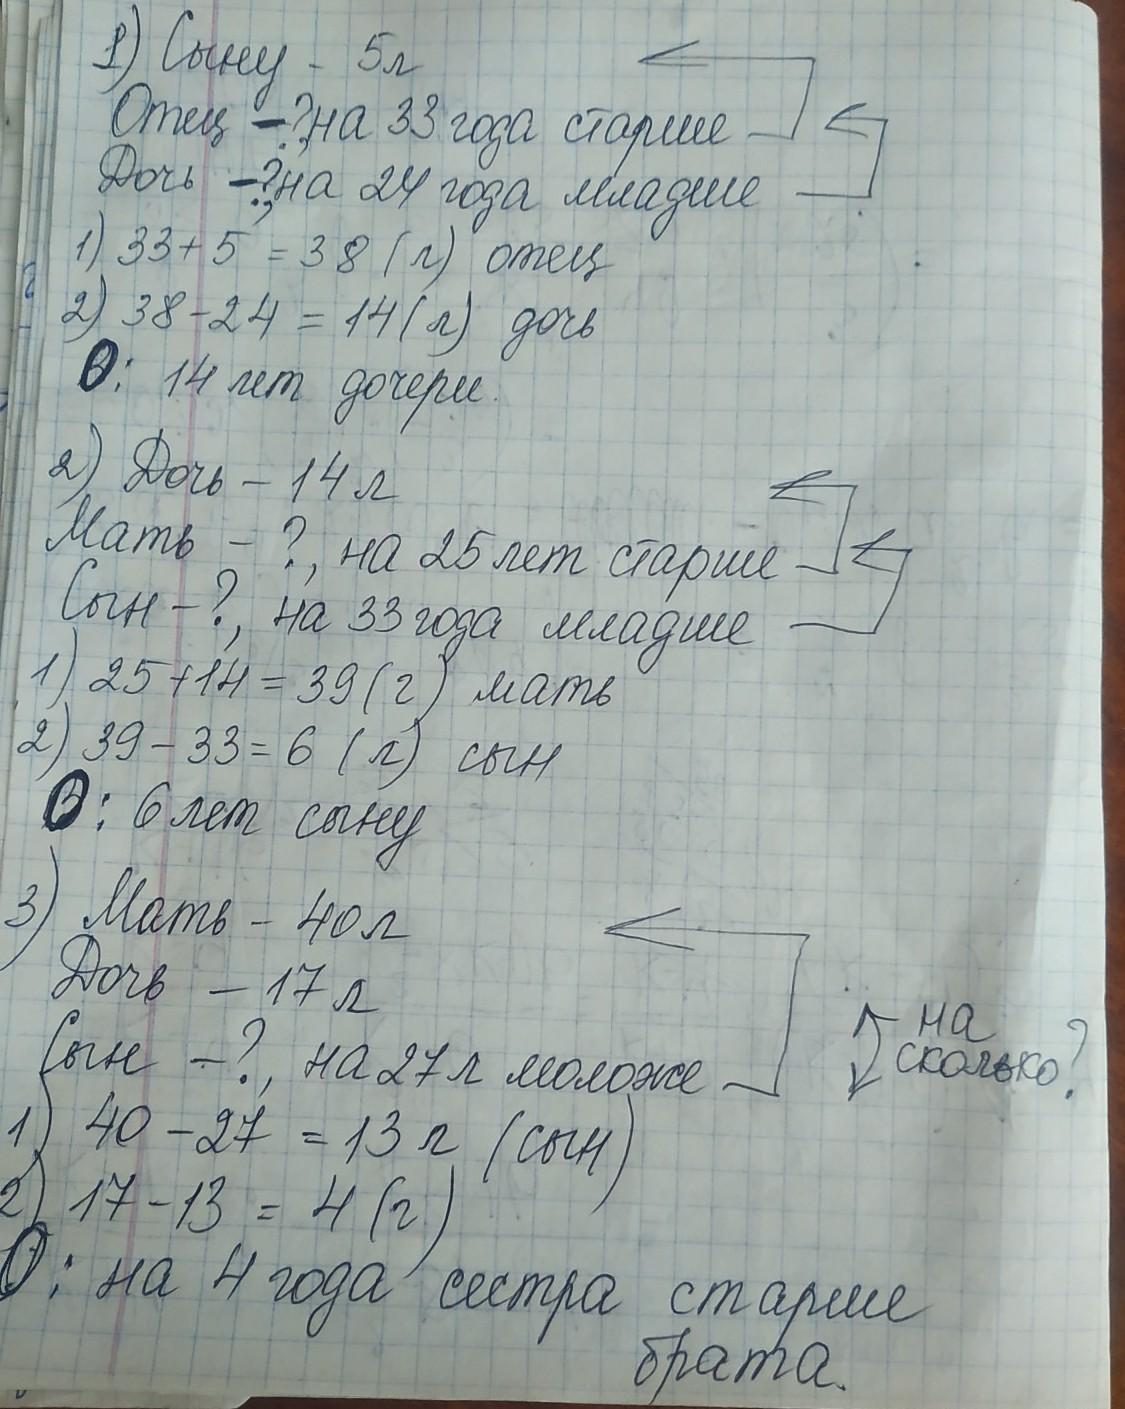 1) Сыну - 5л
Отец -?, на 33 года старше
Дочь -?, на 24 года младше
1) 33+5 = 38 (л) отец
2) 38-24 = 14 (л) дочь
О: 14 лет дочери.
2) Дочь - 14 л
Мать - ?, на 25 лет старше
Сын - ?, на 33 года младше
1) 25+14 = 39 (г) мать
2) 39-33 = 6 (л) сын
О: 6 лет сыну
3) Мать - 40 л
Дочь - 17 л
на
сколько?
Сын - ?, на 27 л моложе
1) 40-27 = 13 л (сын)
2) 17-13 = 4 (г)
О: на 4 года сестра старше
брата.